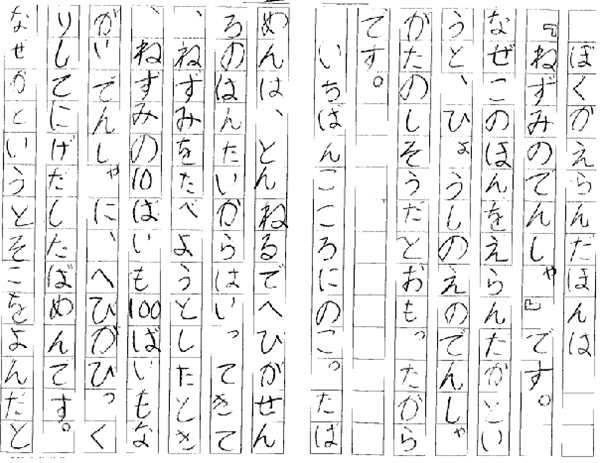 ぼくがえらんだほんは
『ねずみのでんしゃ』です。
なぜこのほんをえらんだかとい
うと、ひょうしのえのでんしゃ
がたのしそうだとおもったから
です。
いちばんこころにのこったば
めんは、とんねるでへびがせん
ろのはんたいからはいってきて
、ねずみをたべようとしたとき
、ねずみの10ばいも100ばいもな
がいでんしゃに、へびがびっく
りしてにげだしたばめんです。
なぜかというとそこをよんだと